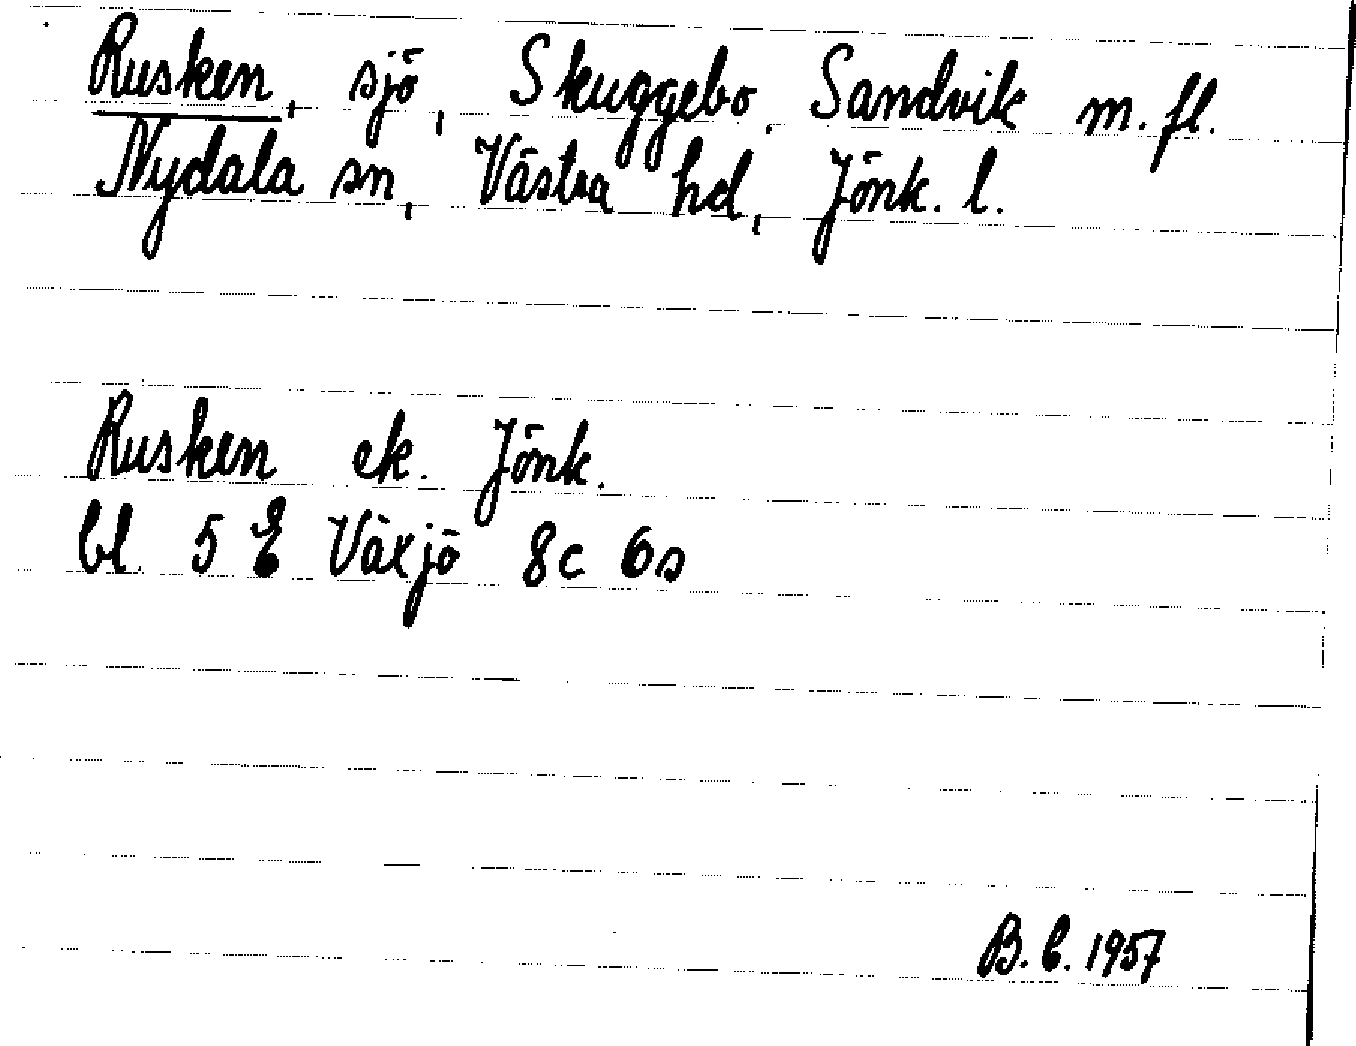 Rusken, sjö, Skuggebo, Sandvik m. fl.
Nydala sn, Västra hd, Jönk. l.
Rusken ek. Jönk.
bl. 5 E Växjö 8c 6s
B. b. 1957